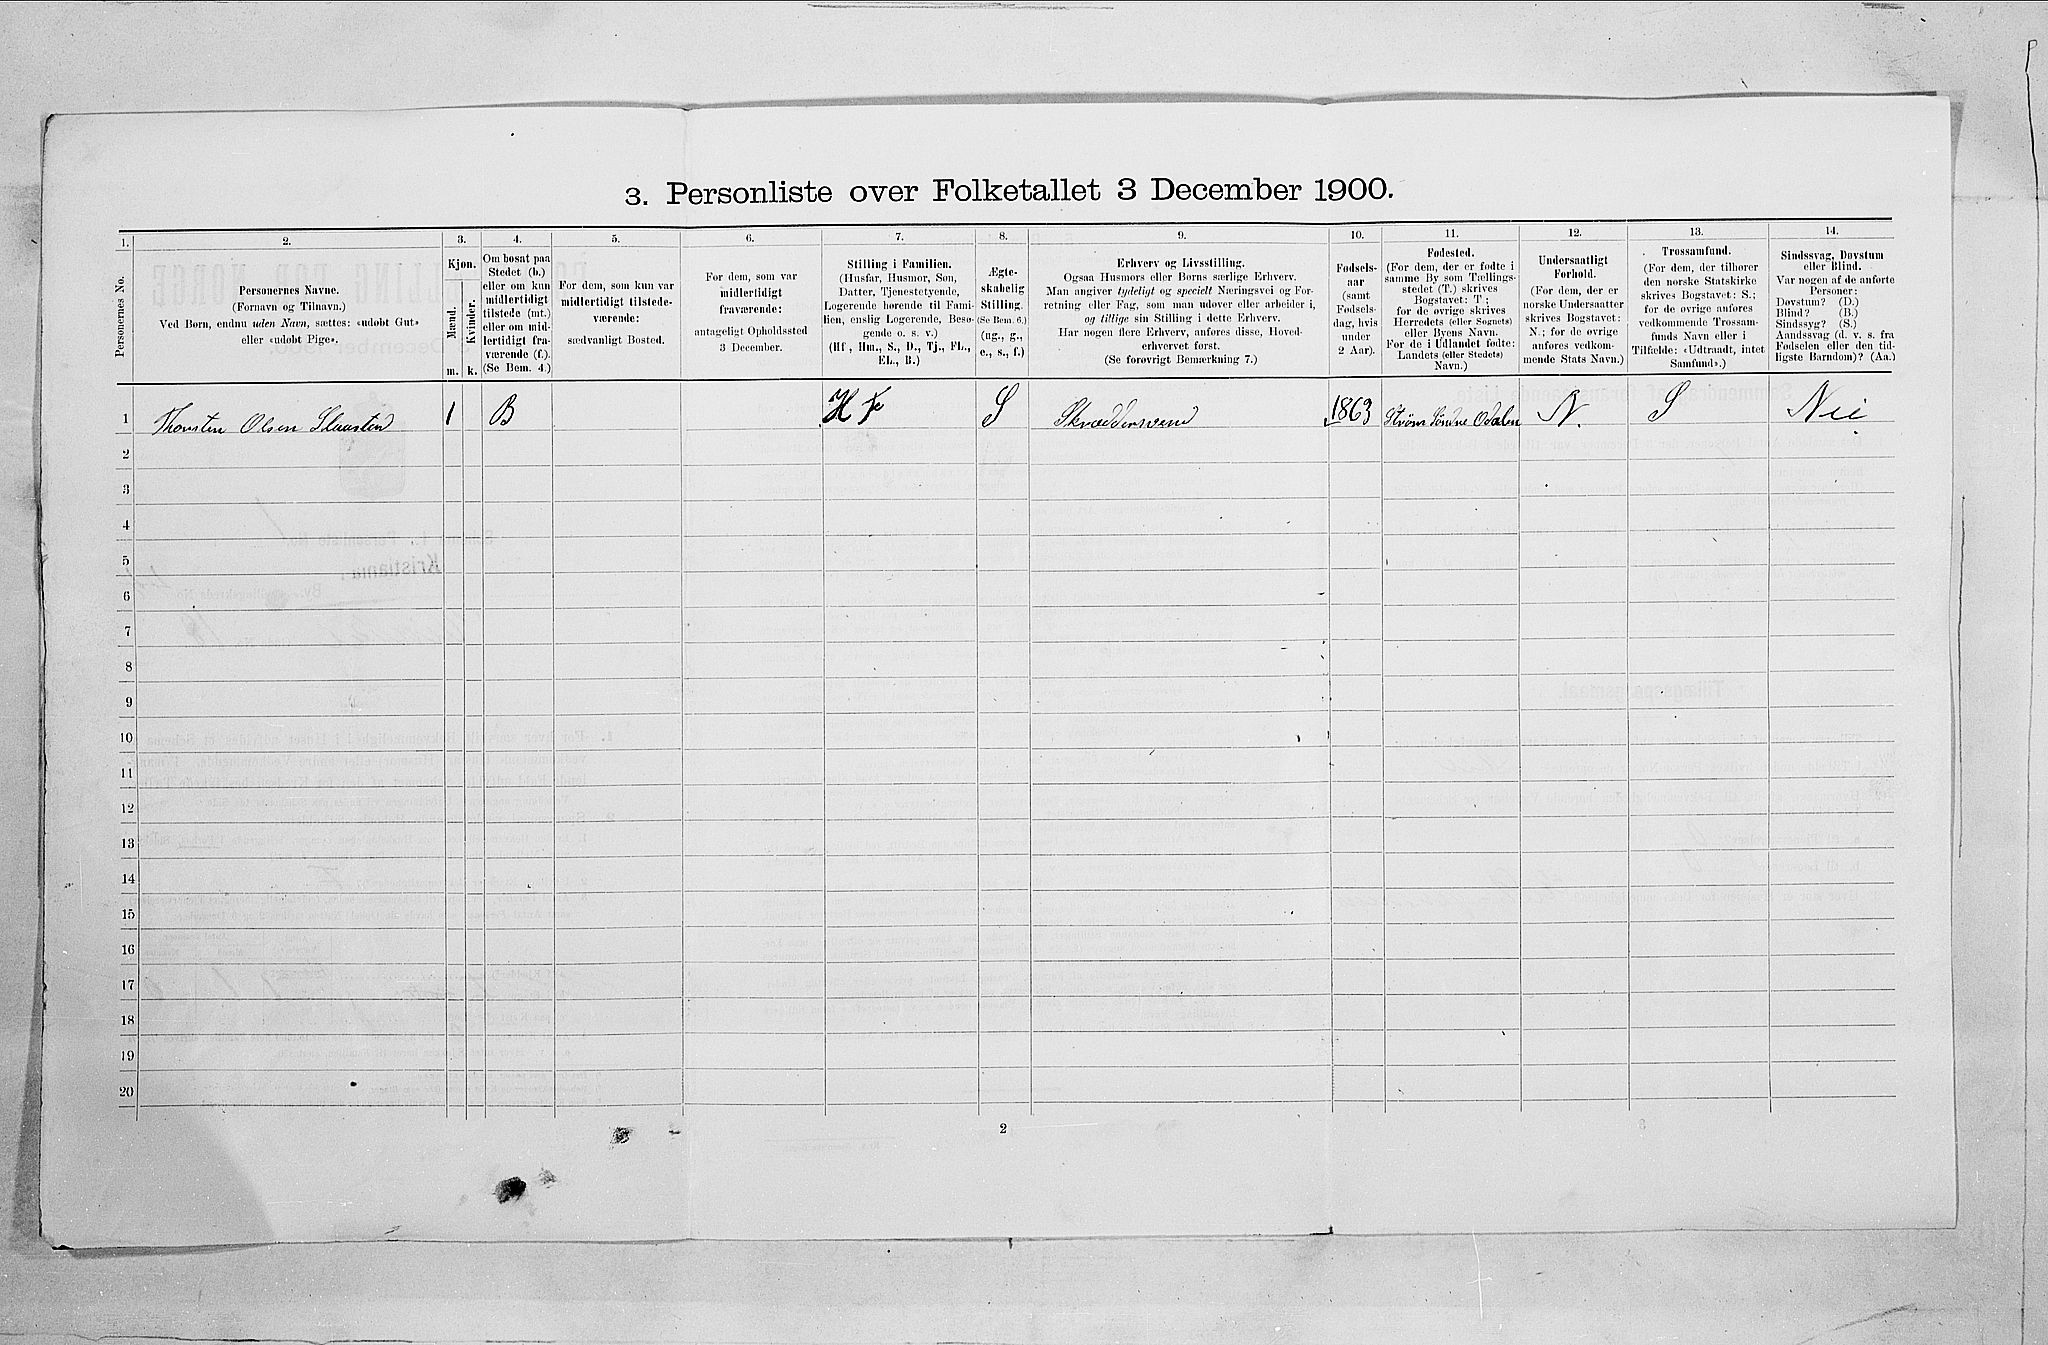 3. Personliste over Folketallet 3 December 1900.
1.
2.
3.
4.
5.
6.
7.
8.
9.
10.
11.
12.
13.
14.
Personernes No.
Personernes Navne.
(Fornavn og Tilnavn.)
Ved Børn, endnu uden Navn, sættes: «udøbt Gut»
eller «udøbt Pige».
Kjøn.
Mænd.
Kvinder.
m.
k.
Om bosat paa
Stedet (b.)
eller om kun
midlertidigt
tilstede (mt.)
eller om mid-
lertidigt fra-
værende (f.).
(Se Bem. 4.)
For dem, som kun var
midlertidigt tilstede-
værende:
sædvanligt Bosted.
For dem, som var
midlertidigt
fraværende:
antageligt Opholdssted
3 December.
Stilling i Familien.
(Husfar, Husmor, Søn,
Datter, Tjenestetyende,
Logerende hørende til Fami-
lien, enslig Logerende, Besø-
gende o. s. v.)
(Hf, Hm., S., D., Tj., FL.,
EL., B.)
Ægte-
skabelig
Stilling.
(Se Bem. 6.)
(ug., g.,
e., s., f.)
Erhverv og Livsstilling.
Ogsaa Husmors eller Børns særlige Erhverv.
Man angiver tydeligt og specielt Næringsvei og For-
retning eller Fag, som man udøver eller arbeider i,
og tillige sin Stilling i dette Erhverv.
Har nogen flere Erhverv, anføres disse, Hoved-
erhvervet først.
(Se forøvrigt Bemærkning 7.)
Fødsels-
aar
(samt
Fødsels-
dag, hvis
under
2 Aar).
Fødested.
(For dem, der er fødte i
samme By som Tællings-
stedet (T.) skrives
Bogstavet: T;
for de øvrige skrives
Herredets (eller Sognets)
eller Byens Navn.
For de i Udlandet fødte:
Landets (eller Stedets)
Navn.)
Undersaatligt
Forhold.
(For dem, der er
norske Undersaatter
skrives Bogstavet:
N.; for de øvrige
anføres vedkom-
mende Stats Navn.)
Trossamfund.
(For dem, der tilhører
den norske Statskirke
skrives Bogstavet: S.;
for de øvrige anføres
vedkommende Trossam-
funds Navn eller i
Tilfælde: «Udtraadt, intet
Samfund».)
Sindssvag, Døvstum
eller Blind.
Var nogen af de anførte
Personer:
Døvstum? (D.)
Blind? (B.)
Sindssyg? (S.)
Aandssvag (d. v. s. fra
Fødselen eller den tid-
ligste Barndom)? (Aa.)
1 Thorsten Olsen 1 B H F S Skræddersvend 1863 Strøm Søndre Odalen N. S Nei
2
3
4
5
6
7
8
9
10
11
12
13
14
15
16
17
18
19
20
2